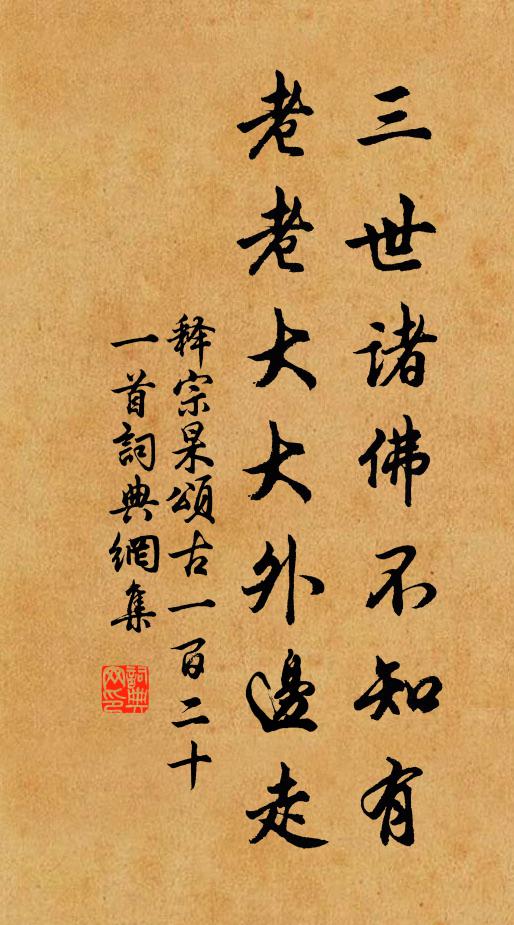 三世诸佛不知有
老老大大外邊走
释宗杲頌古一百二十
一首詞典網集
詞典
网印